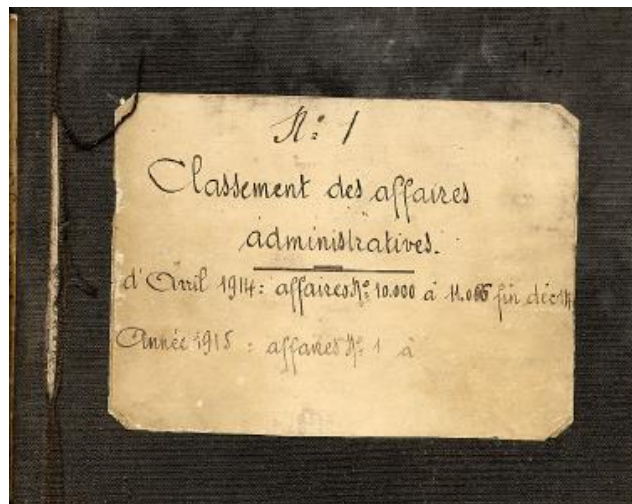 N° 1
Classement des affaires
administratives.
d'Avril 1914: affaires N° 10.000 à fin déc. 14
Année 1915 : affaires N° 1 à